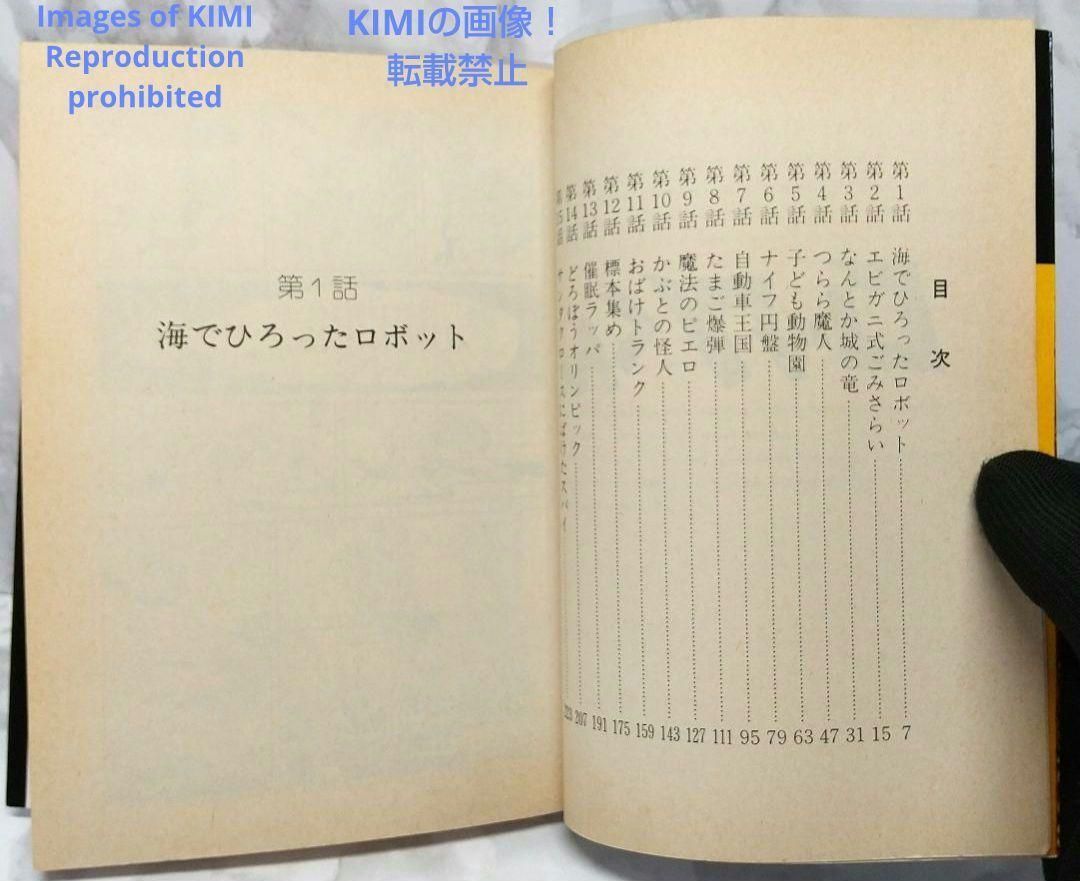 Images of KIMI
Reproduction
prohibited
KIMIの画像！
転載禁止
目次
第1話 海でひろったロボット 7
第2話 エビガニ式ごみさらい 15
第3話 なんとか城の竜 31
第4話 つらら魔人 47
第5話 子ども動物園 63
第6話 ナイフ円盤 79
第7話 自動車王国 95
第8話 たまご爆弾 111
第9話 魔法のピエロ 127
第10話 かぶとの怪人 143
第11話 おばけトランク 159
第12話 標本集め 175
第13話 催眠ラッパ 191
第14話 どろぼうオリンピック 207
第15話 サンタクロースにばけたスパイ 223
第1話
海でひろったロボット